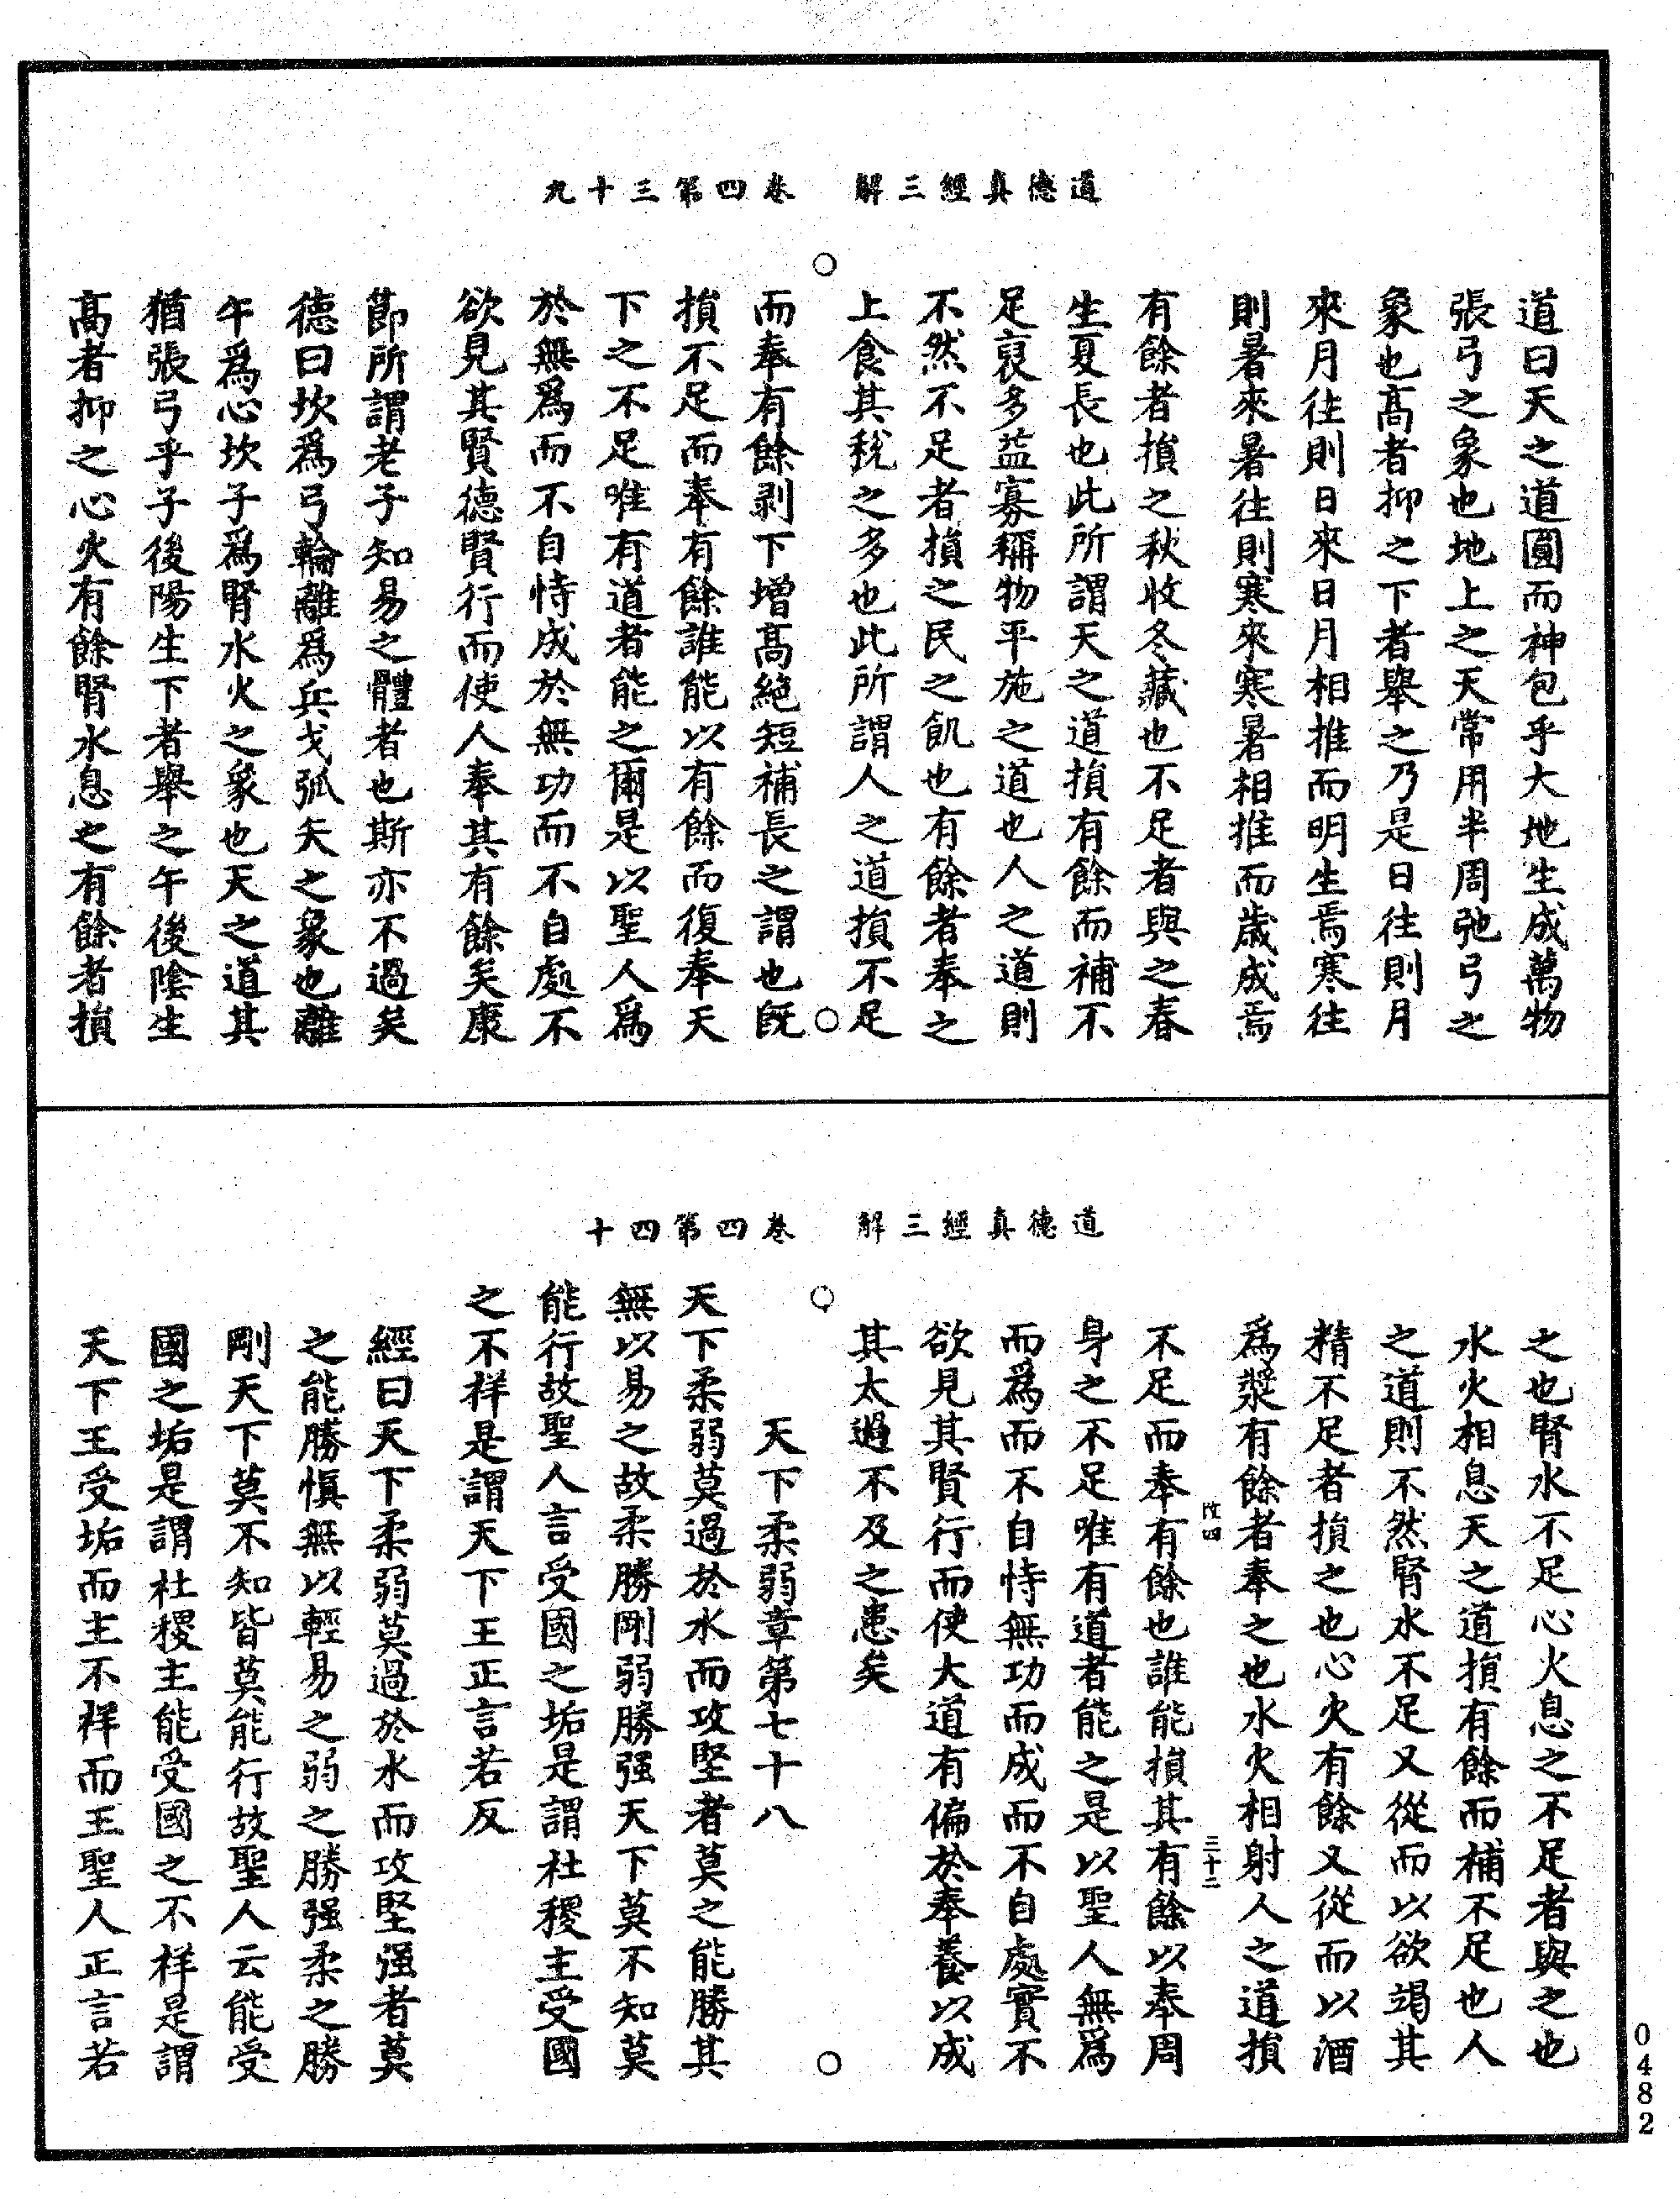 道德真經三解　卷四第三十九
道曰天之道圓而神包乎大地生成萬物
張弓之象也地上之天常用半周弛弓之
象也高者抑之下者舉之乃是日往則月
來月往則日來日月相推而明生焉寒往
則暑來暑往則寒來寒暑相推而歲成焉
有餘者損之秋收冬藏也不足者與之春
生夏長也此所謂天之道損有餘而補不
足裒多益寡稱物平施之道也人之道則
不然不足者損之民之飢也有餘者奉之
上食其稅之多也此所謂人之道損不足
而奉有餘剥下增高絶短補長之謂也旣
損不足而奉有餘誰能以有餘而復奉天
下之不足唯有道者能之爾是以聖人爲
於無爲而不自恃成於無功而不自處不
欲見其賢德賢行而使人奉其有餘矣康
節所謂老子知易之體者也斯亦不過矣
德曰坎爲弓輪離爲兵戈弧矢之象也離
午爲心坎子爲腎水火之象也天之道其
猶張弓乎子後陽生下者舉之午後陰生
高者抑之心火有餘腎水息之有餘者損
道德真經三解　卷四第四十
之也腎水不足心火息之不足者與之也
水火相息天之道損有餘而補不足也人
之道則不然腎水不足又從而以欲竭其
精不足者損之也心火有餘又從而以酒
爲漿有餘者奉之也水火相射人之道損
陸四　三十二
不足而奉有餘也誰能損其有餘以奉周
身之不足唯有道者能之是以聖人無爲
而爲而不自恃無功而成而不自處實不
欲見其賢行而使大道有偏於奉養以成
其太過不及之患矣
天下柔弱章第七十八
天下柔弱莫過於水而攻堅者莫之能勝其
無以易之故柔勝剛弱勝强天下莫不知莫
能行故聖人言受國之垢是謂社稷主受國
之不祥是謂天下王正言若反
經曰天下柔弱莫過於水而攻堅强者莫
之能勝愼無以輕易之弱之勝强柔之勝
剛天下莫不知皆莫能行故聖人云能受
國之垢是謂社稷主能受國之不祥是謂
天下王受垢而主不祥而王聖人正言若
0482